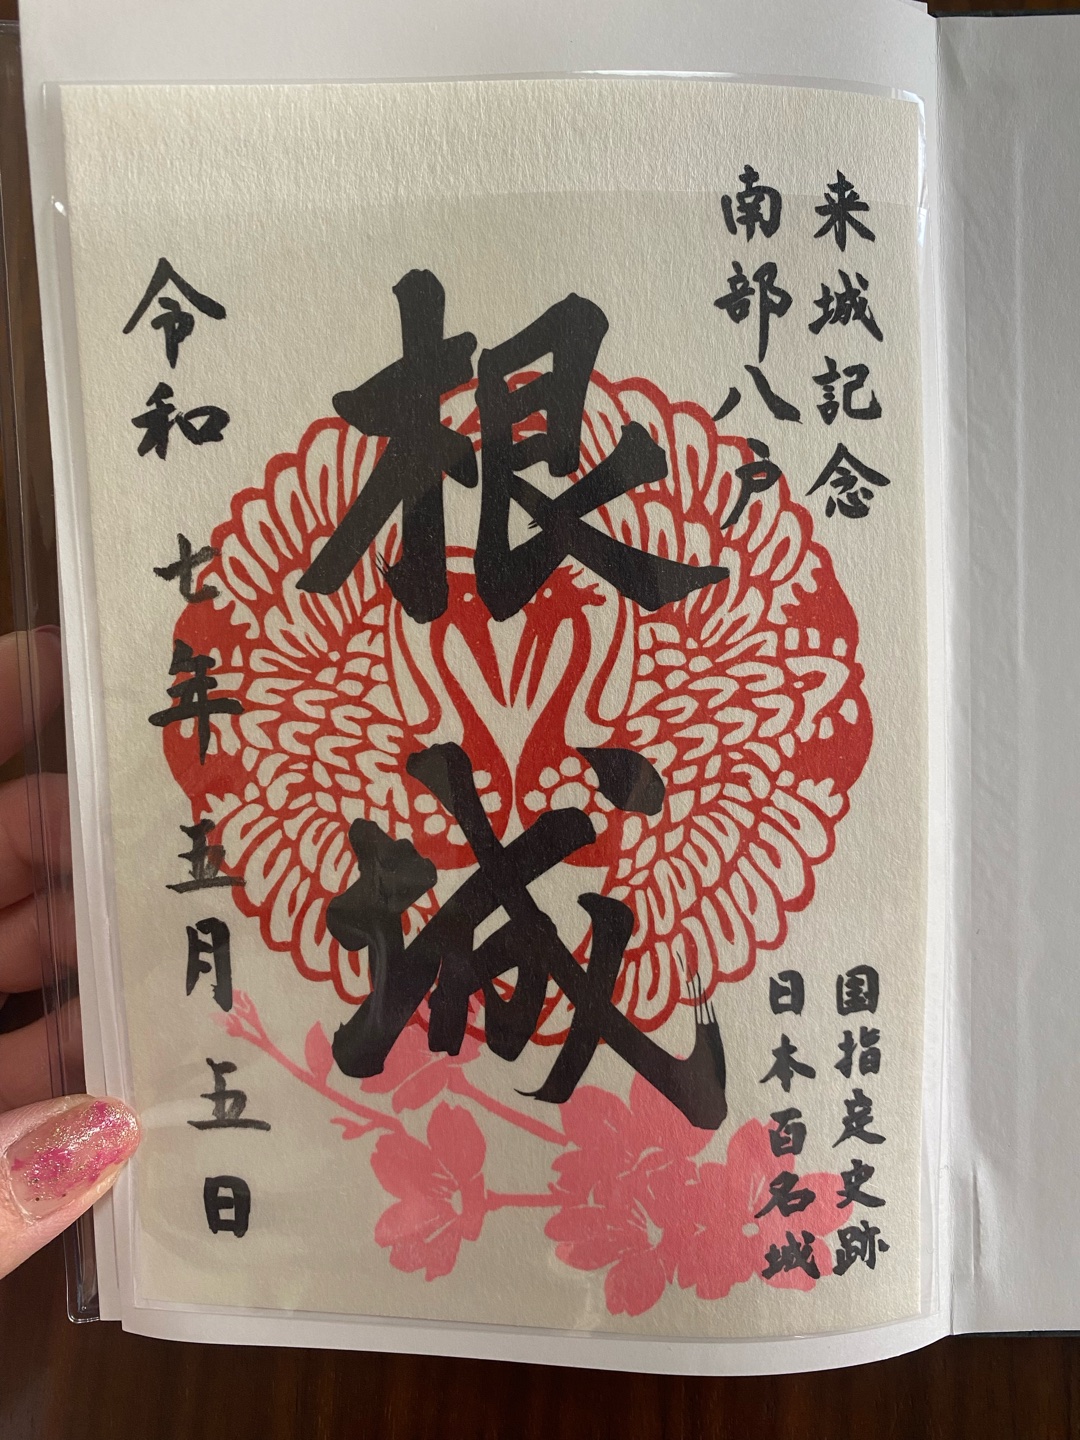 来城記念
南部八戸
国指定史跡
日本百名城
根城
令和七年五月五日